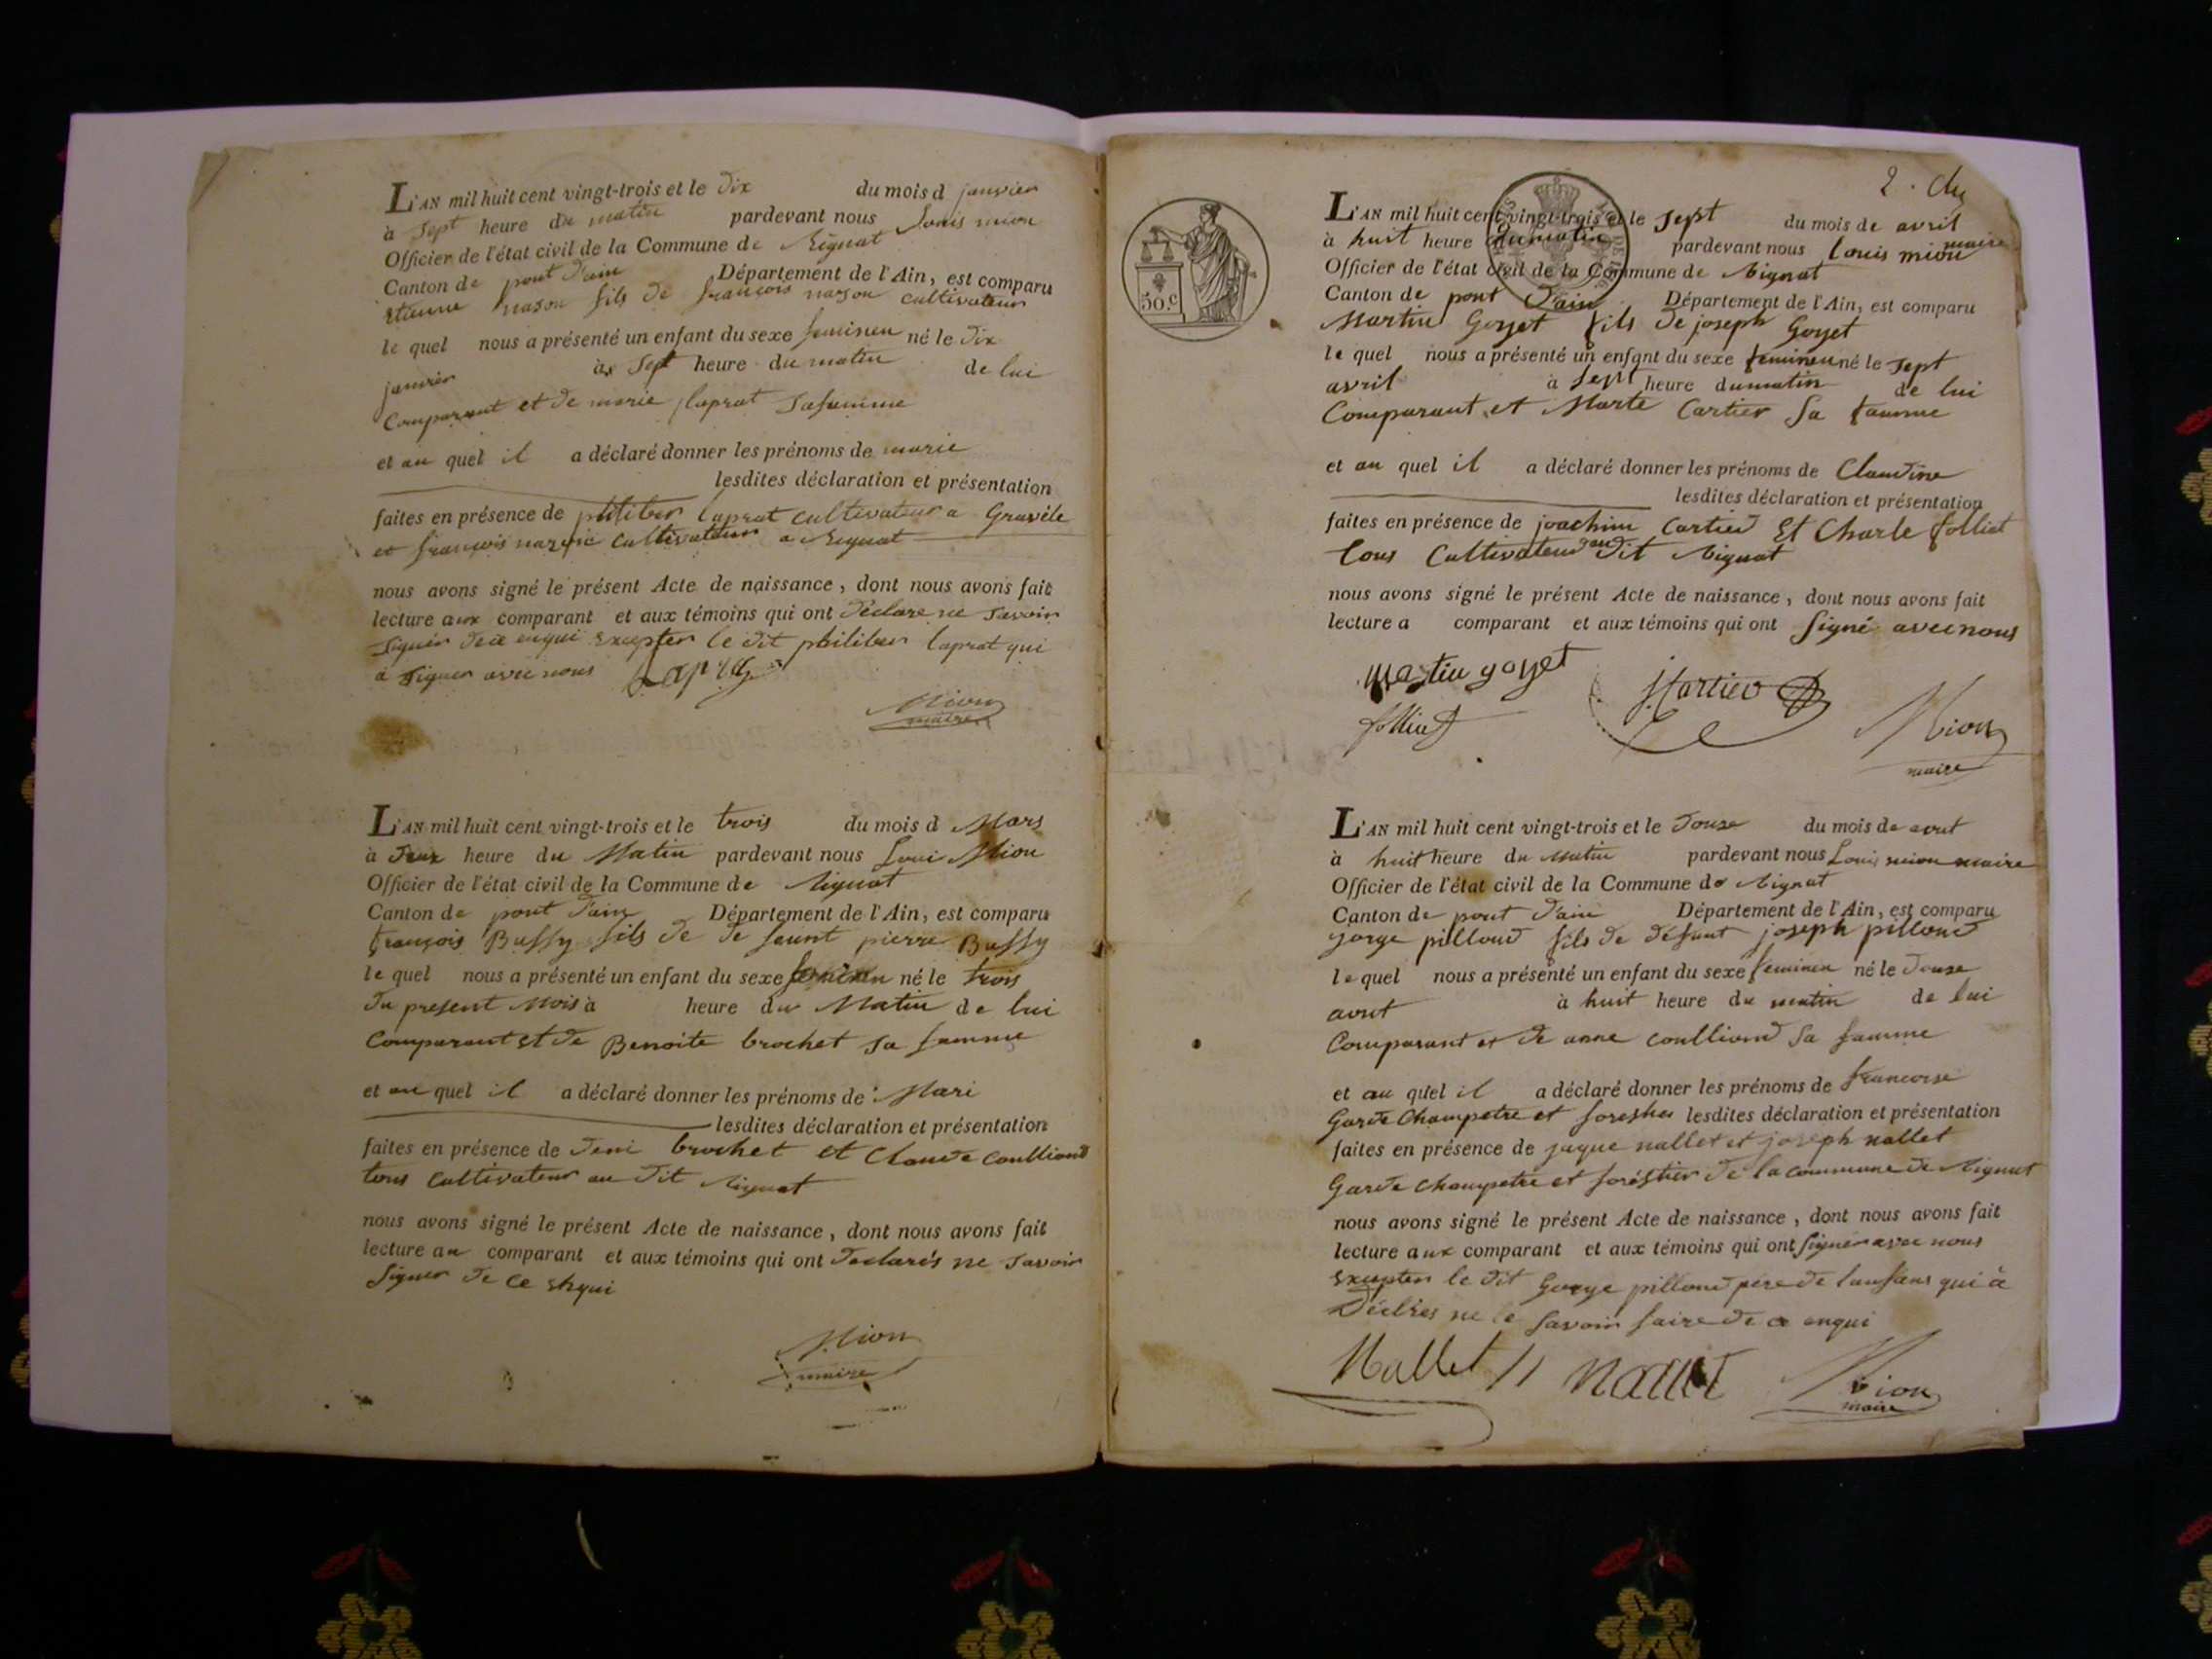 L'AN mil huit cent vingt-trois et le dix du mois d janvier
à sept heure du matin pardevant nous Louis mion
Officier de l'état civil de la Commune de Rignat
Canton de pont d'ain Département de l'Ain, est comparu
etienne fils de françois cultivateur
le quel nous a présenté un enfant du sexe feminen né le dix
janvier à sept heure du matin de lui
Comparant et de marie laprat safemme
et au quel il a déclaré donner les prénoms de marie
lesdites déclaration et présentation
faites en présence de laprat cultivateur a Gravele
et françois cultivateur a Rignat
nous avons signé le présent Acte de naissance, dont nous avons fait
lecture aux comparant et aux témoins qui ont déclare ne savoir
signer de ce enqui excepter le dit philiber laprat qui
à signer avec nous Laprat
Mion
maire
L'AN mil huit cent vingt-trois et le trois du mois d Mars
à deux heure du Matin pardevant nous Loui Mion
Officier de l'état civil de la Commune de Rignat
Canton de pont d'ain Département de l'Ain, est comparu
françois Bussy fils de de feunt pierre Bussy
le quel nous a présenté un enfant du sexe feminen né le trois
du present Mois à heure du Matin de lui
Comparant et de Benoite brochet sa famme
et au quel il a déclaré donner les prénoms de Mari
lesdites déclaration et présentation
faites en présence de deni brochet et Claude coulliout
tous cultivateur au dit Rignat
nous avons signé le présent Acte de naissance, dont nous avons fait
lecture au comparant et aux témoins qui ont declarés ne savoir
signer de ce
Mion
maire
2.
50.c
L'AN mil huit cent vingt-trois et le sept du mois de avril
à huit heure du matin pardevant nous Louis mion maire
Officier de l'état civil de la Commune de Rignat
Canton de pont d'ain Département de l'Ain, est comparu
Martin Goyet fils de joseph Goyet
le quel nous a présenté un enfant du sexe feminen né le sept
avril à sept heure dumatin de lui
Comparant et Marte Cartier sa famme
et au quel il a déclaré donner les prénoms de Claudine
lesdites déclaration et présentation
faites en présence de joachim Cartier Et Charle folliet
tous Cultivateur au dit Rignat
nous avons signé le présent Acte de naissance, dont nous avons fait
lecture a comparant et aux témoins qui ont signé avec nous
martin goyet
j Cartier
folliet
Mion
maire
L'AN mil huit cent vingt-trois et le douse du mois de avut
à huit heure du matin pardevant nous Louis mion maire
Officier de l'état civil de la Commune de Rignat
Canton de pont d'ain Département de l'Ain, est comparu
gorge pilloud fils de défunt joseph pilloud
le quel nous a présenté un enfant du sexe feminen né le douse
avut à huit heure du matin de lui
Comparant et de anne coulliout sa famme
et au quel il a déclaré donner les prénoms de francoise
Garde Champetre et lesdites déclaration et présentation
faites en présence de jaque nallet et joseph nallet
Garde champetre et foréstier de la commune de Rignat
nous avons signé le présent Acte de naissance, dont nous avons fait
lecture aux comparant et aux témoins qui ont signer avec nous
excepter le dit Gorge pilloud pere de lanfans qui à
ne le savoir faire de ce enqui
Nallet
nallet
Mion
maire